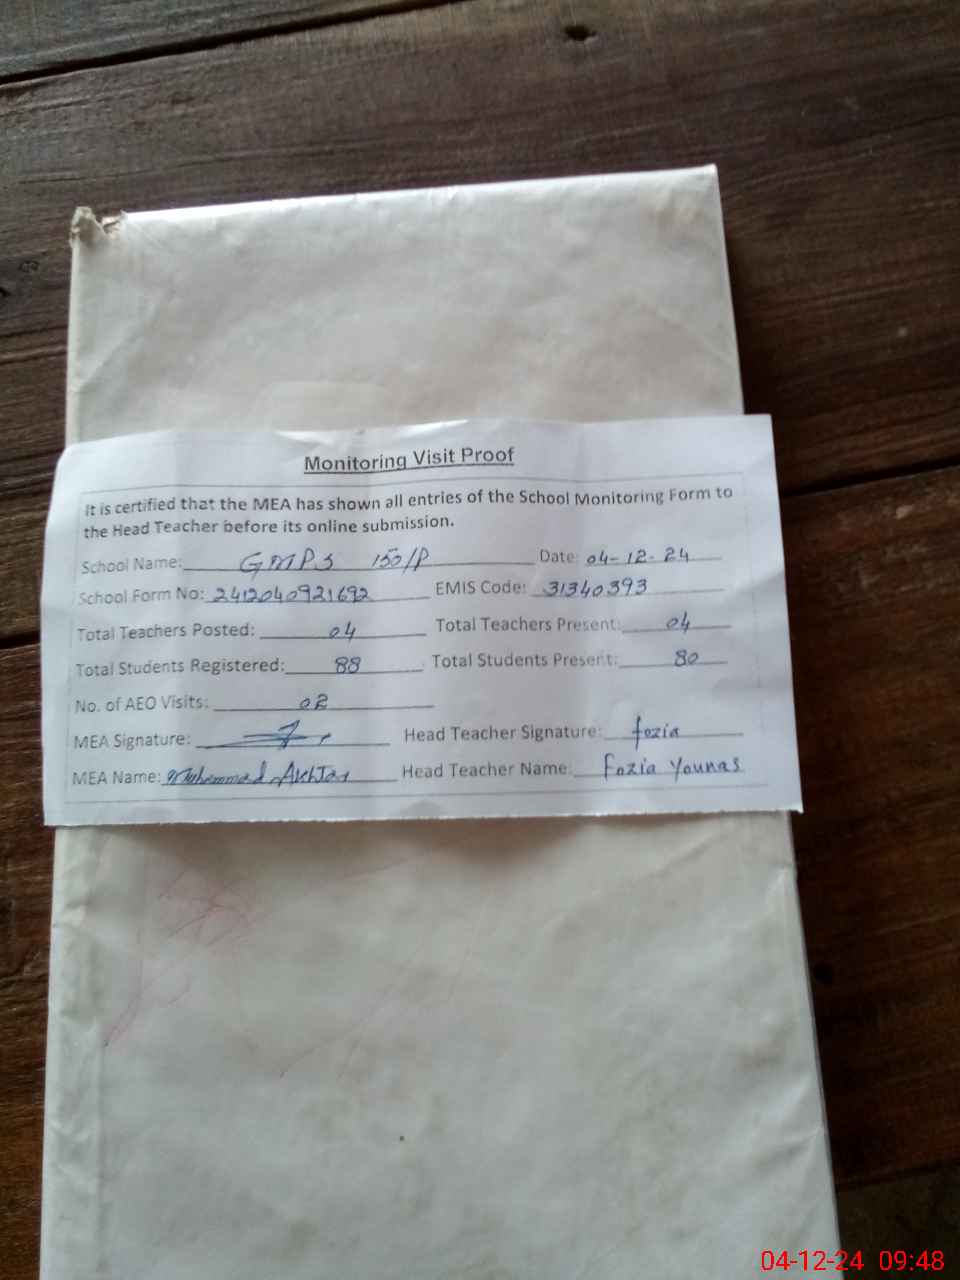 Monitoring Visit Proof
It is certified that the MEA has shown all entries of the School Monitoring Form to
the Head Teacher before its online submission.
School Name: GMPS 150/P Date: 04-12-24
School Form No: 2412040921692 EMIS Code: 31340393
Total Teachers Posted: 04 Total Teachers Present: 04
Total Students Registered: 88 Total Students Present: 80
No. of AEO Visits: 02
MEA Signature: Head Teacher Signature: fozia
MEA Name: Muhammad Akhtar Head Teacher Name: Fozia Younas
04-12-24 09:48